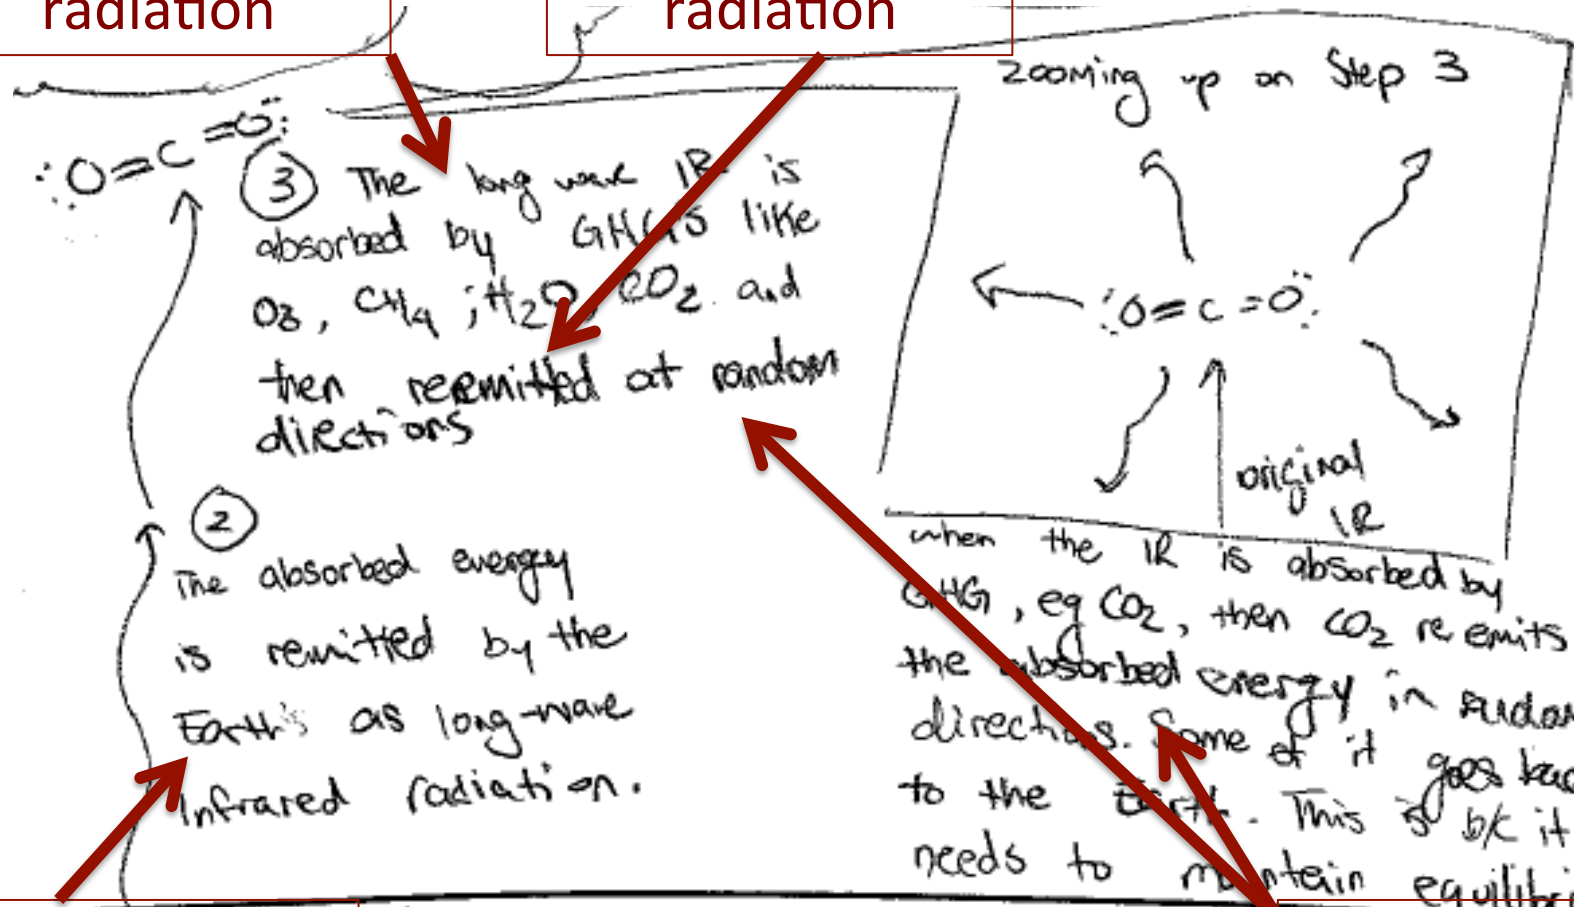 radiation
radiation
zooming up on Step 3
:O=C=O:
③ The long wave IR is
absorbed by GHGs like
O3, CH4, H2O, CO2 and
then reemitted at random
directions
:O=C=O:
original
IR
②
The absorbed energy
is remitted by the
Earth's as long-wave
Infrared radiation.
when the IR is absorbed by
GHG, eg CO2, then CO2 re emits
the absorbed energy in
directions. Some of it goes
to the Earth. This is b/c it
needs to maintain